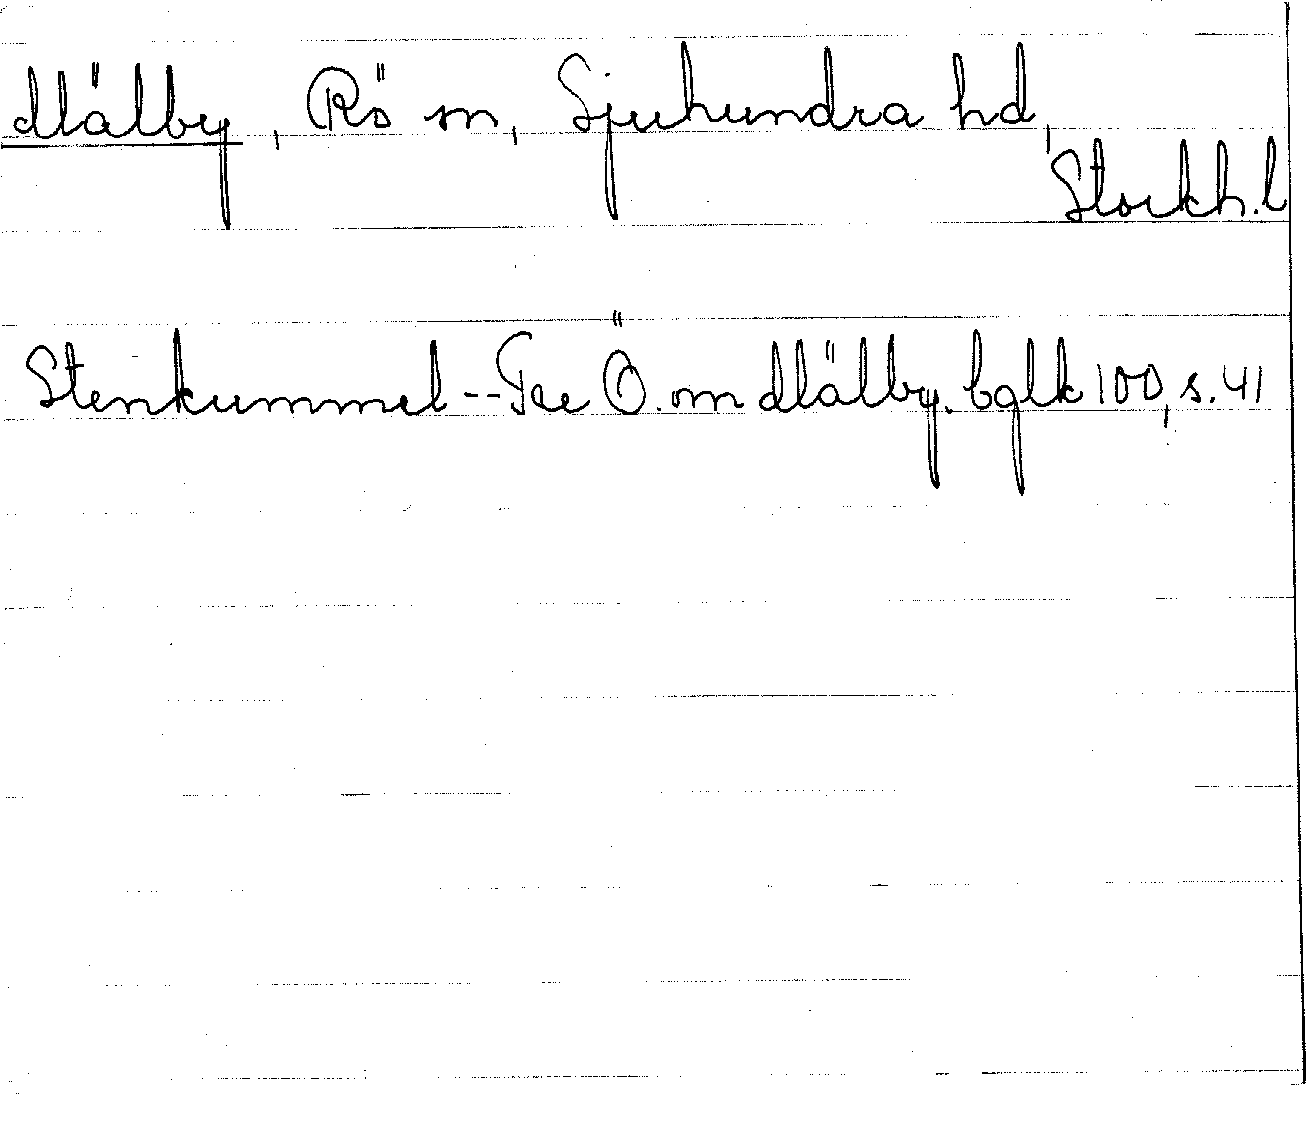 Mälby, Rö sn, Sjuhundra hd,
Stockh. l
Stenkummel -- Ö. om Mälby. bglk 100, s. 41